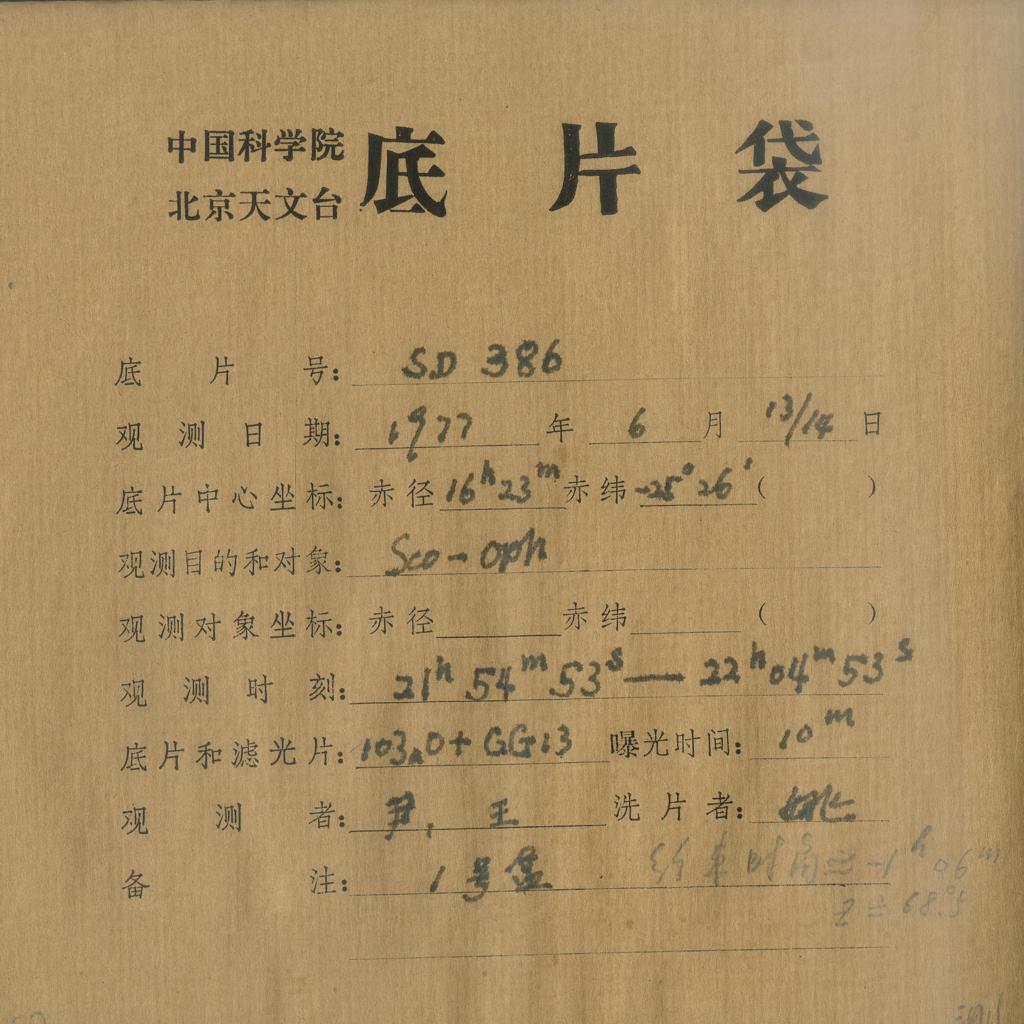 中国科学院
北京天文台
底片袋
底片号: SD 386
观测日期: 1977 年 6 月 13/14 日
底片中心坐标: 赤径 16ʰ23ᵐ 赤纬 -25°26′ ( )
观测目的和对象: Sco - Oph
观测对象坐标: 赤径 赤纬 ( )
观测时刻: 21ʰ 54ᵐ 53ˢ — 22ʰ 04ᵐ 53ˢ
底片和滤光片: 103aO + GG13 曝光时间: 10ᵐ
观测者: 尹, 王 洗片者:
备注: 1号盒 结束时角 -1ʰ 06ᵐ
Z = 68.°5